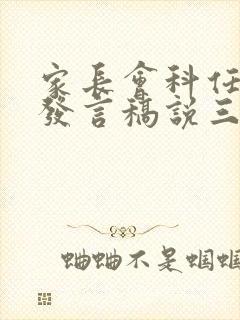 家長會科任
發言稿說三
蛐蛐不是蝈蝈